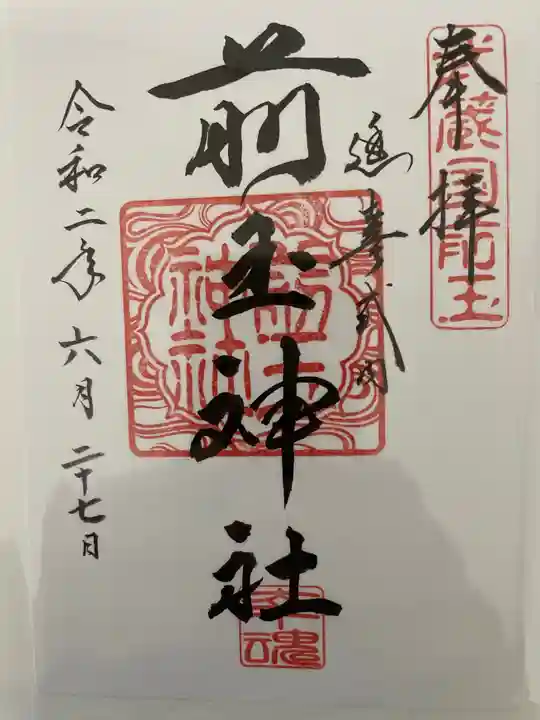 奉拝
武蔵国前玉
延喜式内
前玉神社
前玉
神社
幸魂
令和二年 六月 二十七日